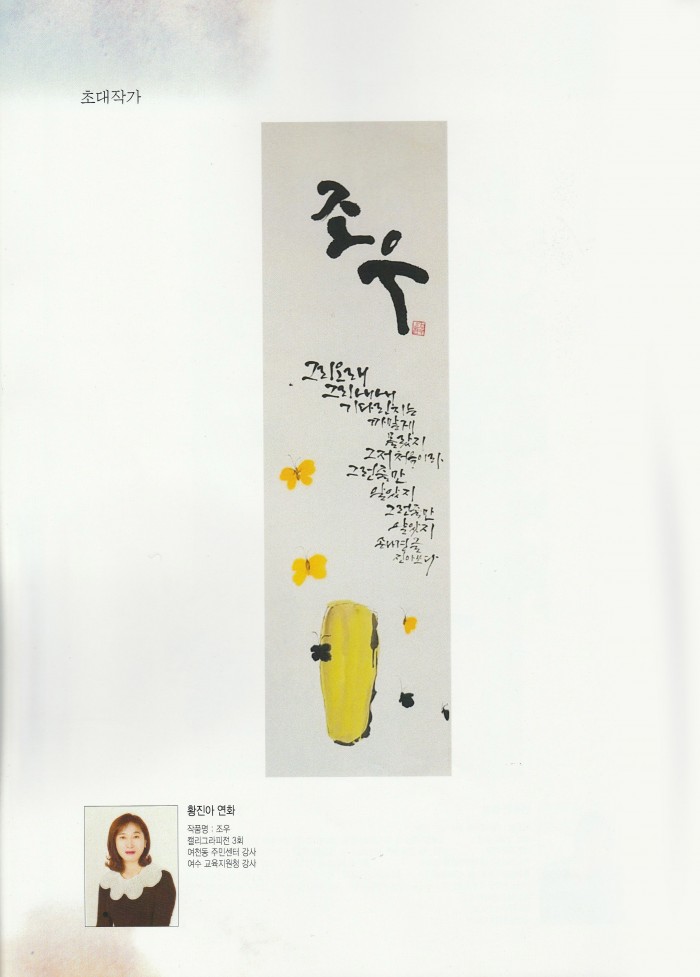 초대작가
조우
그리오래
그리 내내
기다린지는
까맣게
몰랐지
그저 처음이라
그런줄만
알았지
그런줄만
알았지
손내경글
진아쓰다
황진아 연화
작품명 : 조우
캘리그라피전 3회
여천동 주민센터 강사
여수 교육지원청 강사